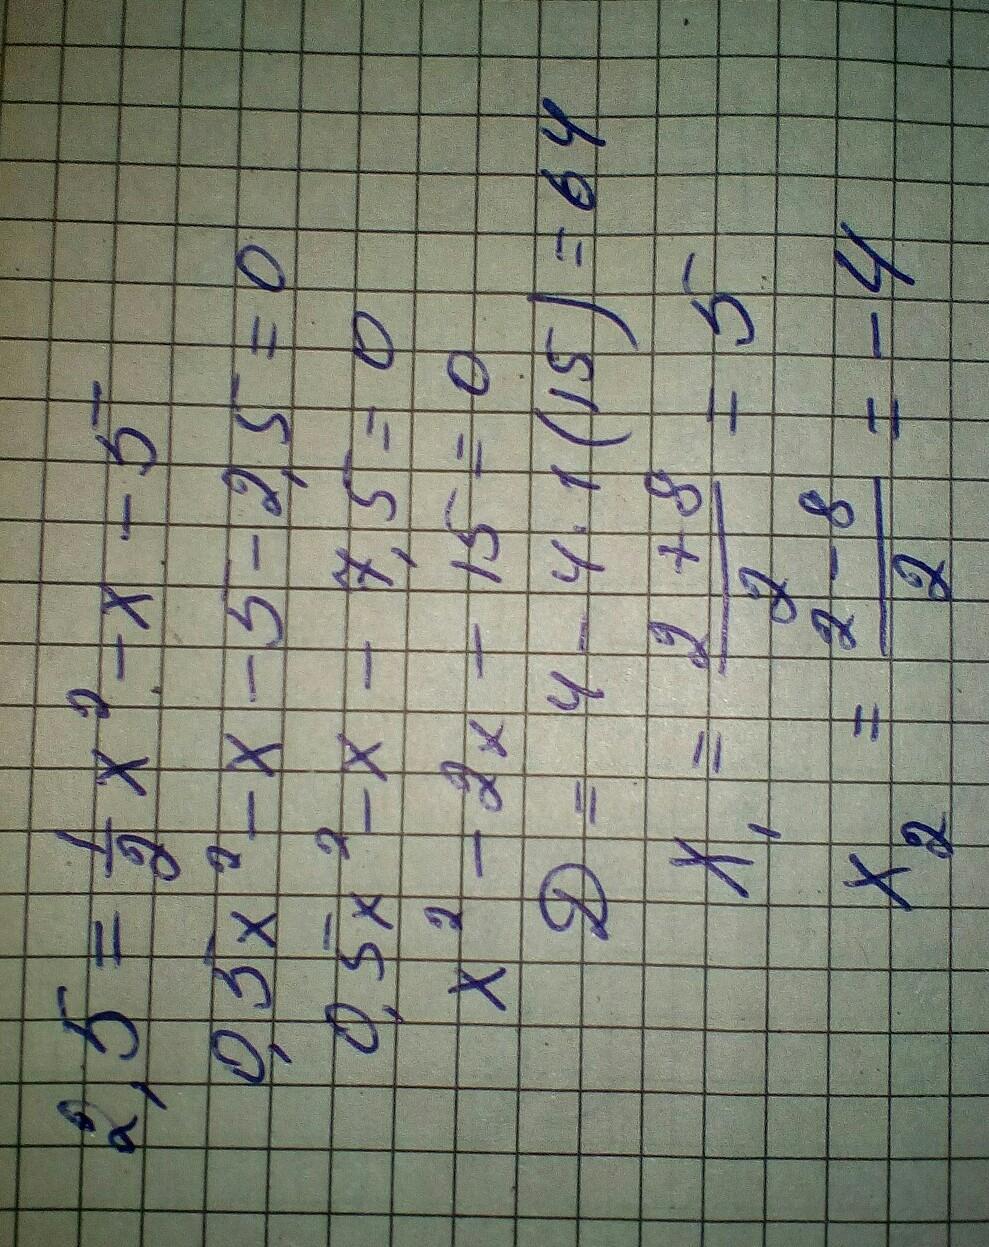 2,5 = 1/2 x² - x - 5
0,5x² - x - 5 - 2,5 = 0
0,5x² - x - 7,5 = 0
x² - 2x - 15 = 0
D = 4 - 4 · 1 (15) = 64
x₁ = (2 + 8)/2 = 5
x₂ = (2 - 8)/2 = -4